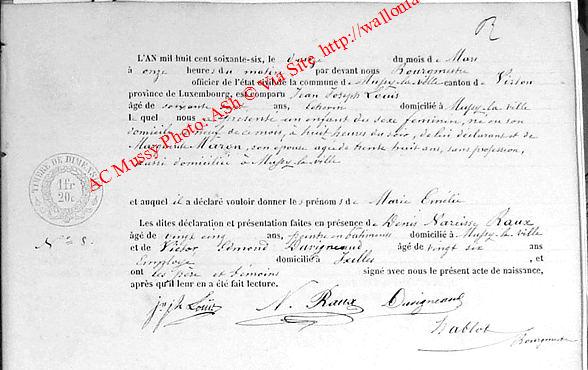 R
L'AN mil huit cent soixante-six, le douze du mois de Mars
à onze heures du matin par devant nous Bourgmestre
officier de l'état civil de la commune de Mussy-la-ville canton de Virton
province de Luxembourg, est comparu Jean Joseph Louis
âgé de soixante ans, échevin domicilié à Mussy-la-ville
Lequel nous a présenté un enfant du sexe féminin, né en son
domicile neuf de ce mois, à huit heures du soir, de lui déclarant et de
Marguerite son épouse agée de trente huit ans, sans profession,
aussi domiciliée à Mussy-la-ville
et auquel il a déclaré vouloir donner les prénoms de Marie Emélie
Les dites déclaration et présentation faites en présence de Denis Narcisse Raux
âgé de vingt cinq ans, peintre en bâtiments domicilié à Mussy-la-ville
et de Victor Edmond Duvigneaud âgé de vingt six ans
Employé domicilié à Ixelles, et
ont les père et témoins signé avec nous le présent acte de naissance,
après qu'il leur en a été fait lecture.
TIMBRE DE DIMENS
1 fr
20c
jnjph Louis N. Raux Duvigneaud
Hablot
Bourgmestre
AC Mussy Photo: ASh © via Site http://wallonia